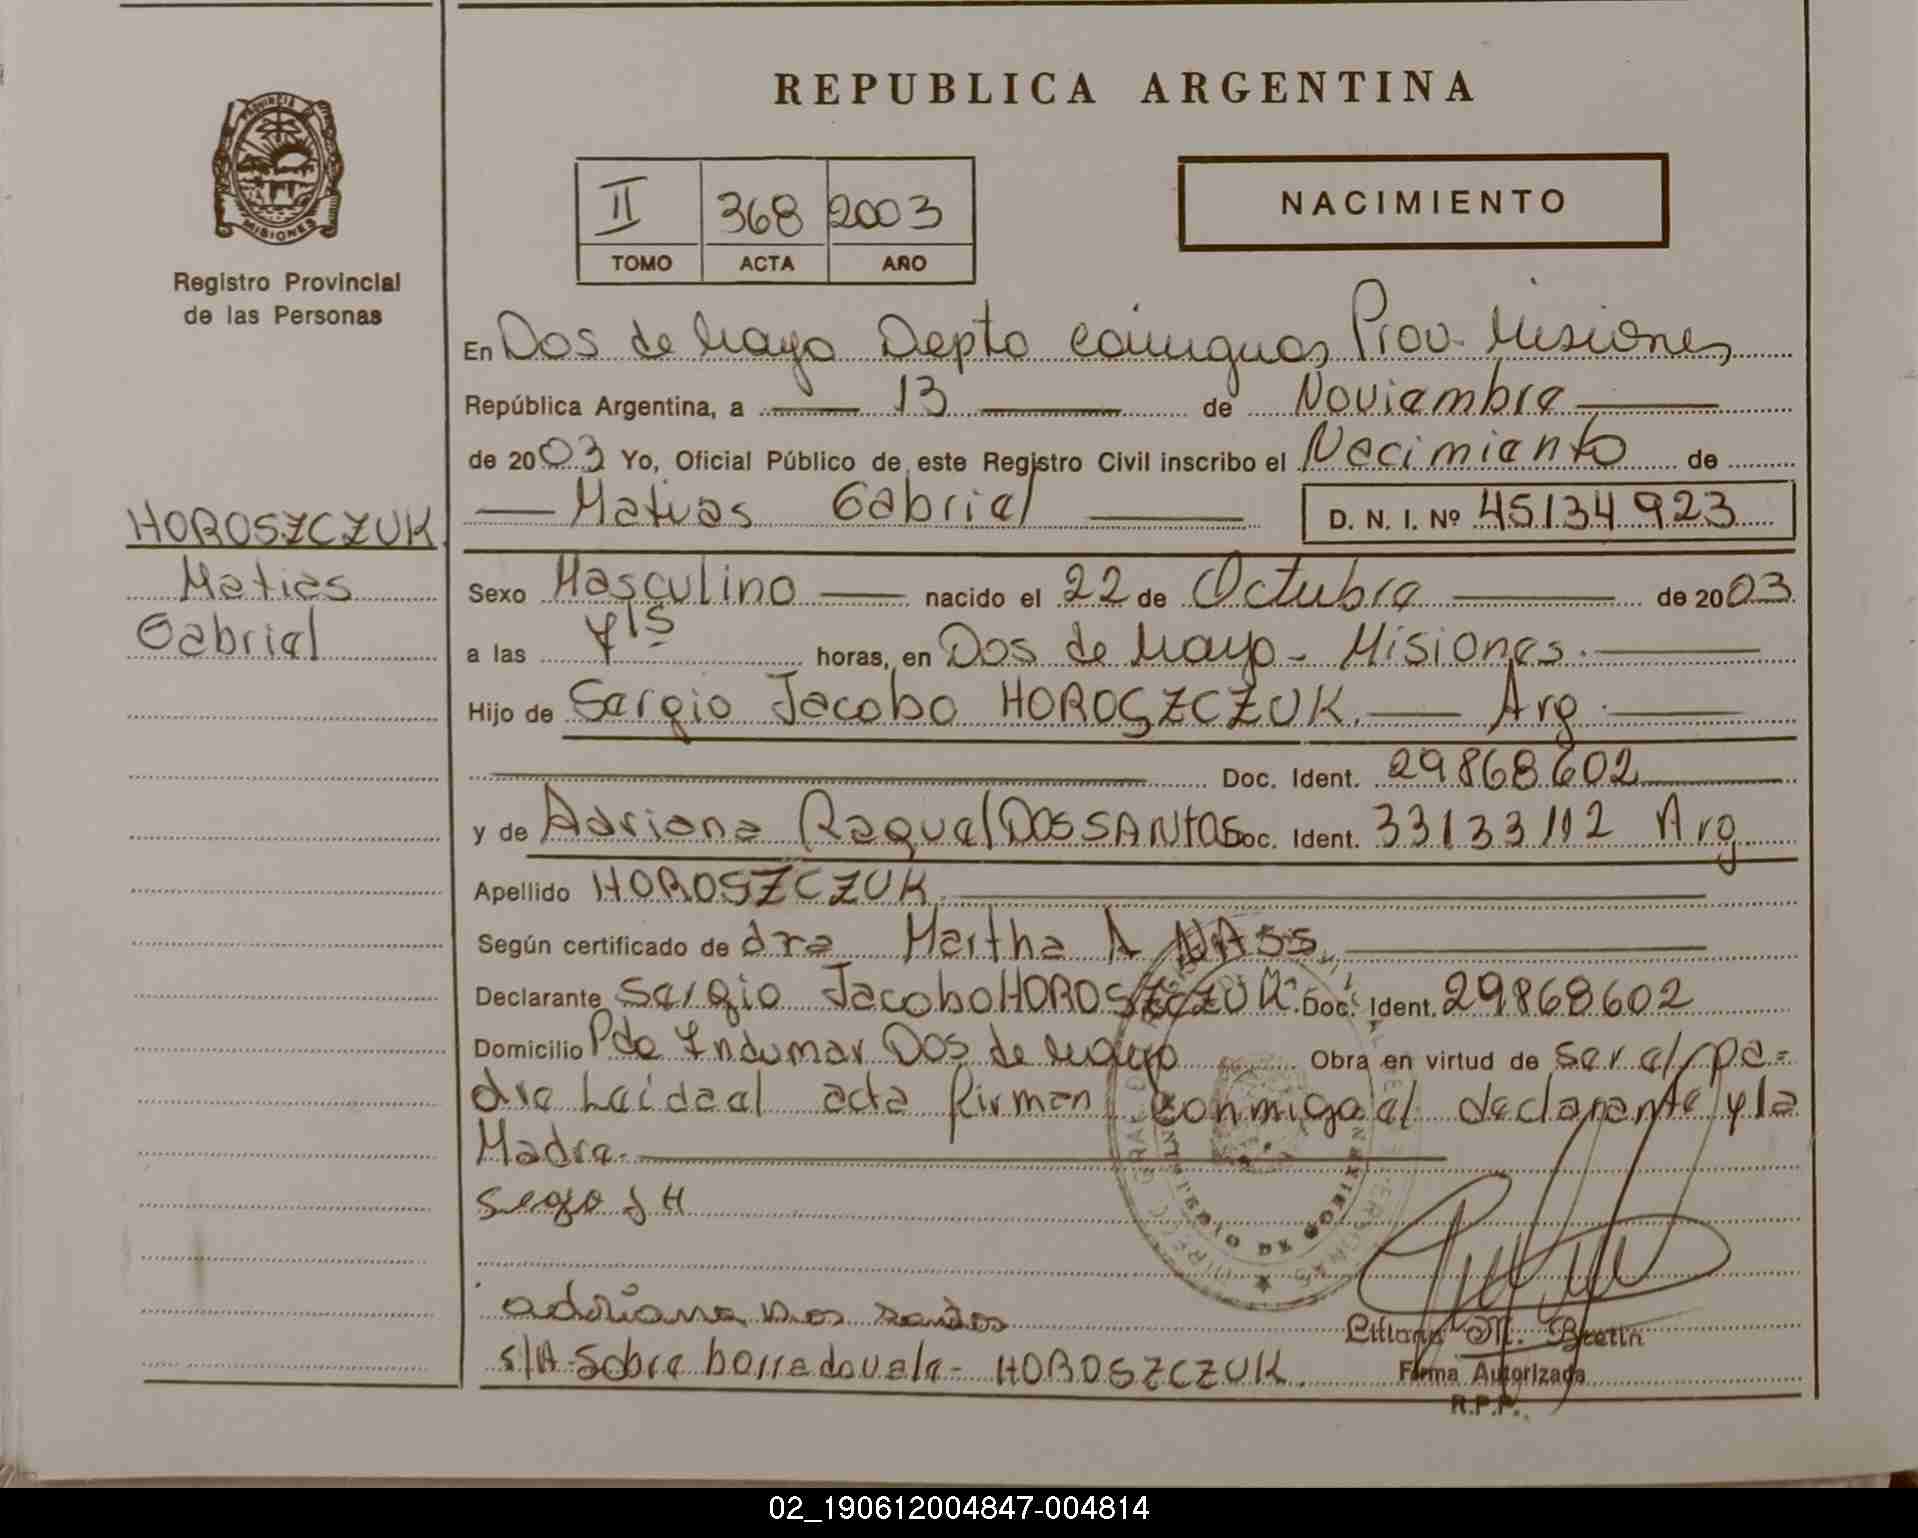 REPUBLICA ARGENTINA
PROVINCIA
MISIONES
Registro Provincial
de las Personas
II 368 2003
TOMO ACTA AÑO
NACIMIENTO
En Dos de Mayo Depto Cainguas Prov. Misiones
República Argentina, a 13 de Noviembre
de 2003 Yo, Oficial Público de este Registro Civil inscribo el Nacimiento de
Matias Gabriel D. N. I. Nº 45134923
HOROSZCZUK
Matias
Gabriel
Sexo Masculino nacido el 22 de Octubre de 2003
a las horas, en Dos de Mayo - Misiones.
Hijo de Sergio Jacobo HOROSZCZUK. Arg.
Doc. Ident. 29868602
y de Adriana Raquel DOS SANTOS Doc. Ident. 33133112 Arg
Apellido HOROSZCZUK.
Según certificado de dra Martha A NASS.
Declarante Sergio Jacobo HOROSZCZUK. Doc. Ident. 29868602
Domicilio Pdo Indumar Dos de Mayo Obra en virtud de ser el pa=
dre Leida el acta firman conmigo el declarante y la
Madre.
Sergio J H
adriana Dos Santos
S/A Sobre borrado vale - HOROSZCZUK.
Liliana M. Bretin
Firma Autorizada
R.P.P.
02_190612004847-004814